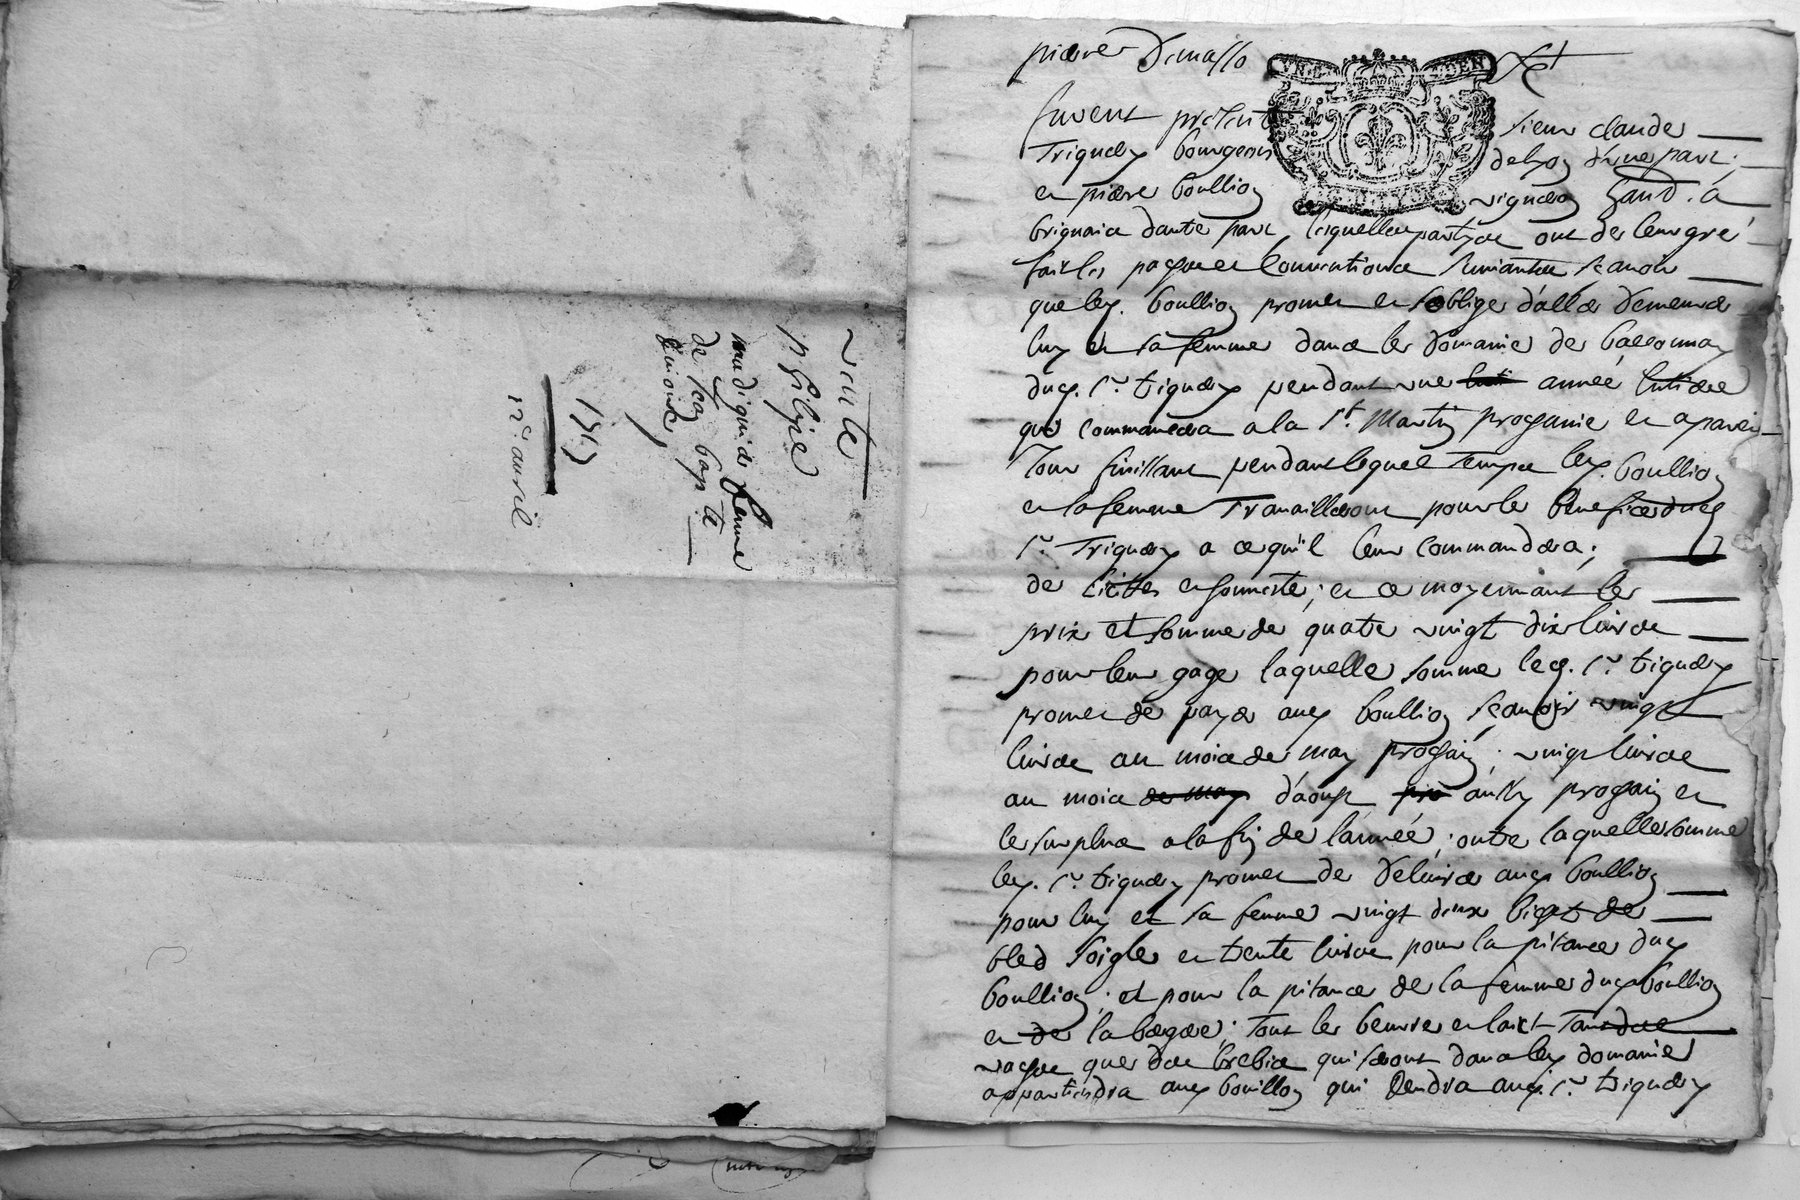 vente
philipe
mudiguid femme
de Jean bap.te
Simond
1717
12e. avril
pierre Dumasso
furent present sieur claude
Triquery bourgeois de lyon d'une part;
et pierre boullioy vigneron hand. a
brignaia dautre part, lesquelles partyes ont de leur gré
fait les pasches et conventions suivantes scavoir
que ley. boullioy promet et soblige d'aller demeurer
luy et sa femme dans le domaine de
ducy. Sr. triquery pendant une année entiere
qui commancera a la St. Martin prochaine et a pareil
Jour finissant pendant lequel temps ley. boullioy
et sa femme Travailleront pour le benefice ducy
Sr. Triquery a ce qu'il leur commandera;
de licites et honneste; et ce moyennant le
prix et somme de quatre vingt dix livres
pour leur gage laquelle somme lecy. Sr. triquery
promet de payer aucy boullioy scavoir vingt
livres au mois de may prochain; vingt livres
au mois de may d'aoust aussy prochain et
le surplus a la fin de l'année; outre laquelle somme
ley. Sr. triquery promet de delivrer aucy boullioy
pour luy et sa femme vingt deux bichet de
bled soigle et trente livres pour la pitance ducy
boullioy; et pour la pitance de la femme ducy boullioy
et de la bergere; Tout le beurre et laict Tant des
vaches que des brebis qui seront dans ley domaine
appartiendra aucy boullioy qui rendra aucy. Sr. triquery